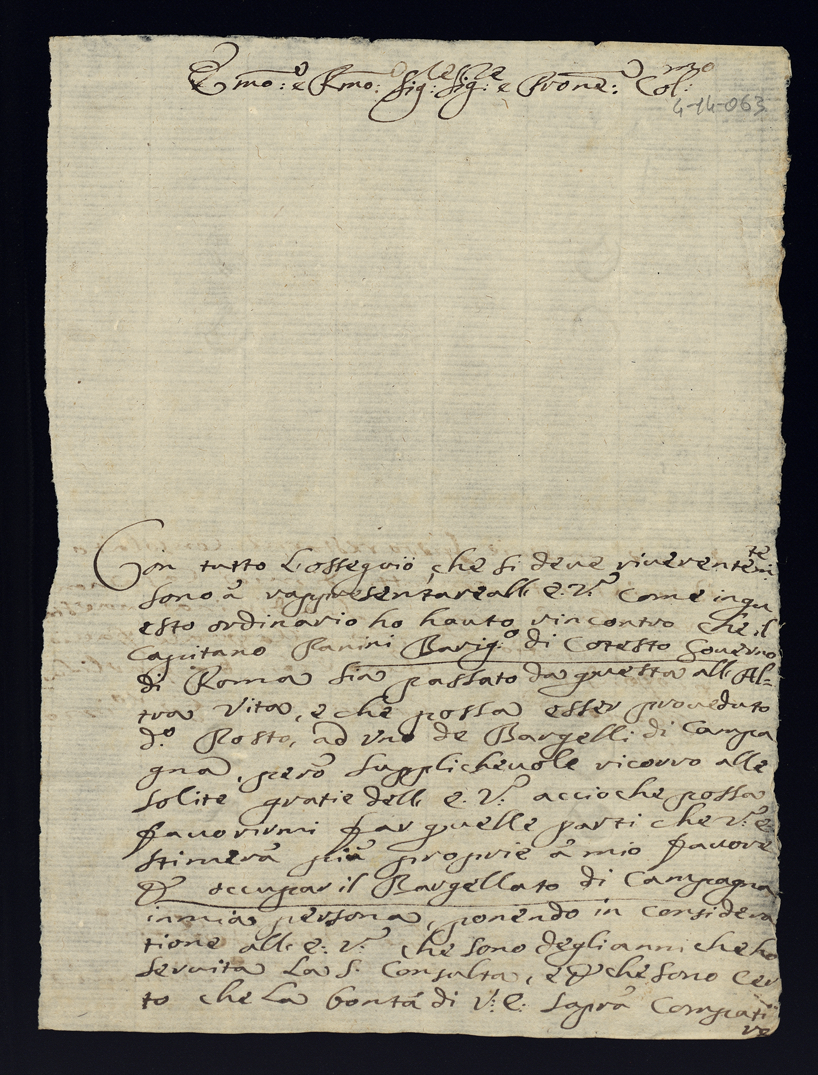 Emo: e Rmo: Sig:re Sig:re e Prone: Col:mo
4-14-063
Con tutto l'ossequiò che si deve riverentemte
sono à rappresentare all e. V.a come inqu
esto ordinario ho hauto rincontro che il
Capitano Panini Barig.o di Cotesto Governo
di Roma sia passato da questa all Al-
tra Vita, e che possa esser proveduto
d.o Posto, ad Uno de Bargelli di Campa
gna, però supplichevole ricorro alle
solite gratie dell e. V.a accioche possa
favorirmi far quelle parti che V.a e
stimerà più proprie à mio favore
P occupar il Bargellato di Campagna
in mia persona, ponendo in considera
tione all e: V.a che sono degli anni che ho
servita La S. Consulta, e P che sono Cer
to che La bontà di V: E: saprà Compati
re